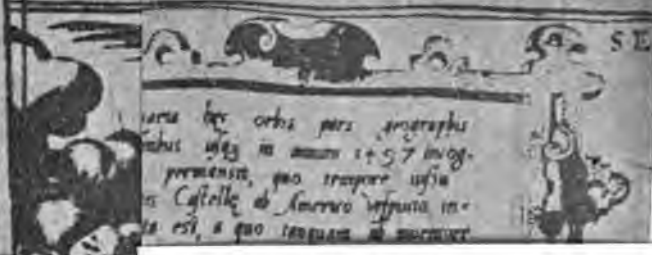 S E
hęc orbis pars geographis
usq; in annum 1497 incog-
permansit, quo tempore iussu
Castellę ab Americo Vesputio in-
est, a quo tanquam ab inventore